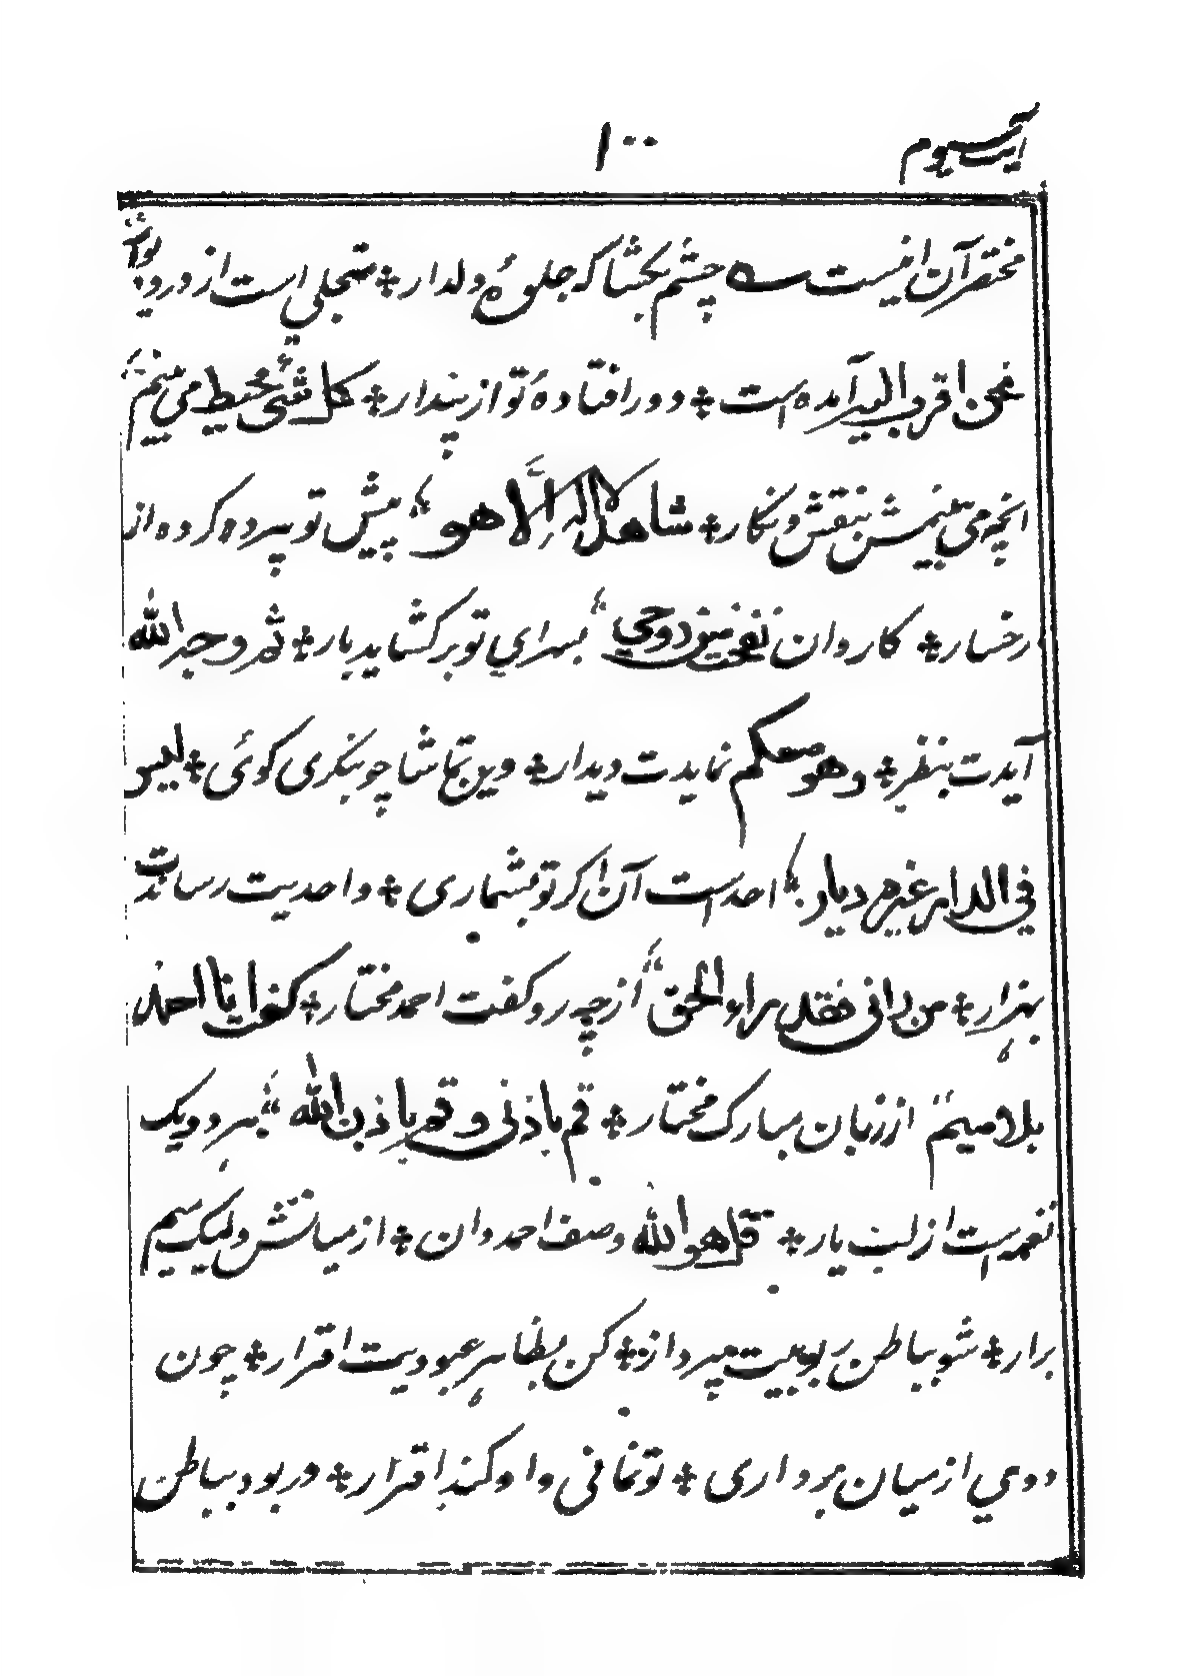 آیت سیوم ١٠٠
مختصر آن اینست چشم بکشا که جلوهٔ دلدار ٭ متجلی است از در و دیوار
نحن اقرب الیه آمده است ٭ دور افتادهٔ تو از پندار ٭ کل شئ محیط می بینم
انچه می بینمش بنقش و نگار ٭ شاهد لا اله الا هو پیش تو پرده کرده از
رخسار ٭ کاروان نفخت من روحی بسرای تو بر کشاید بار ٭ ثم وجه الله
آیدت بنظر ٭ وهو معکم نمایدت دیدار ٭ وین تماشا چو بنگری گوئی ٭ لیس
فی الدار غیره دیار احد است آن اگر تو بشماری ٭ واحدیت رساندت
بهزار ٭ من رانی فقد راء الحق از چه رو گفت احمد مختار ٭ گفت انا احمد
بلا میم از زبان مبارک مختار ٭ قم باذنی و قم باذن الله بهر دو یک
نغمه است از لب یار ٭ قل هو الله وصف احمد دان ٭ از میانش ولیک میم
برار ٭ شو بباطن ربوبیت پرداز ٭ کن بظاهر عبودیت اقرار ٭ چون
دوی از میان برداری ٭ تو نمانی و او کند اقرار ٭ در بود بباطن